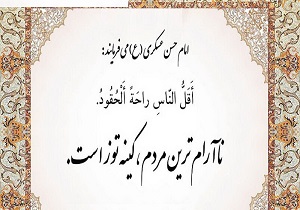 امام حسن عسکری (ع) می فرمایند:
أَقَلُّ النّاسِ راحَةً أَلْحُقُودُ.
ناآرام ترین مردم، کینه توز است.